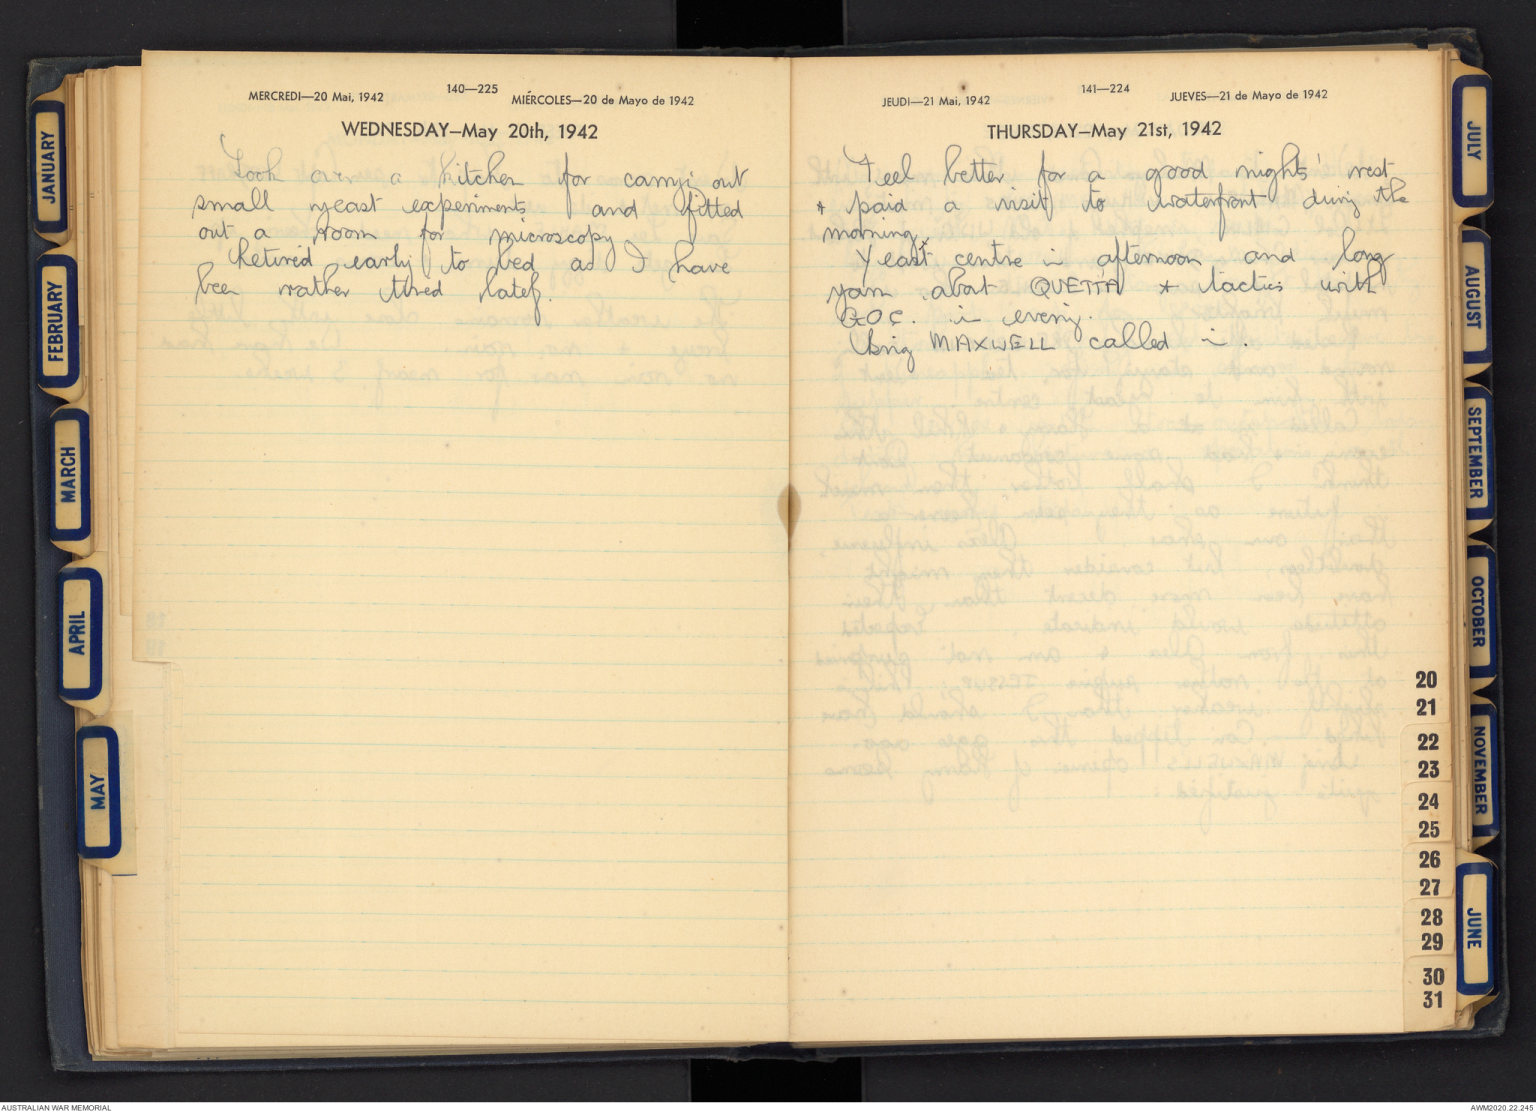 MERCREDI—20 Mai, 1942
140—225
MIÉRCOLES—20 de Mayo de 1942
WEDNESDAY—May 20th, 1942
Took over a kitchen for carryi out
small yeast experiments and fitted
out a room for microscopy
Retired early to bed as I have
been rather tired lately.
JEUDI—21 Mai, 1942
141—224
JUEVES—21 de Mayo de 1942
THURSDAY—May 21st, 1942
Feel better for a good nights' rest
+ paid a visit to waterfront during the
morning.
Yeast centre in afternoon and long
yarn about QUETTA + tactics with
G.O.C. in evening.
Brig MAXWELL called in.
JANUARY
FEBRUARY
MARCH
APRIL
MAY
JULY
AUGUST
SEPTEMBER
OCTOBER
NOVEMBER
JUNE
20
21
22
23
24
25
26
27
28
29
30
31
AUSTRALIAN WAR MEMORIAL
AWM2020.22.245